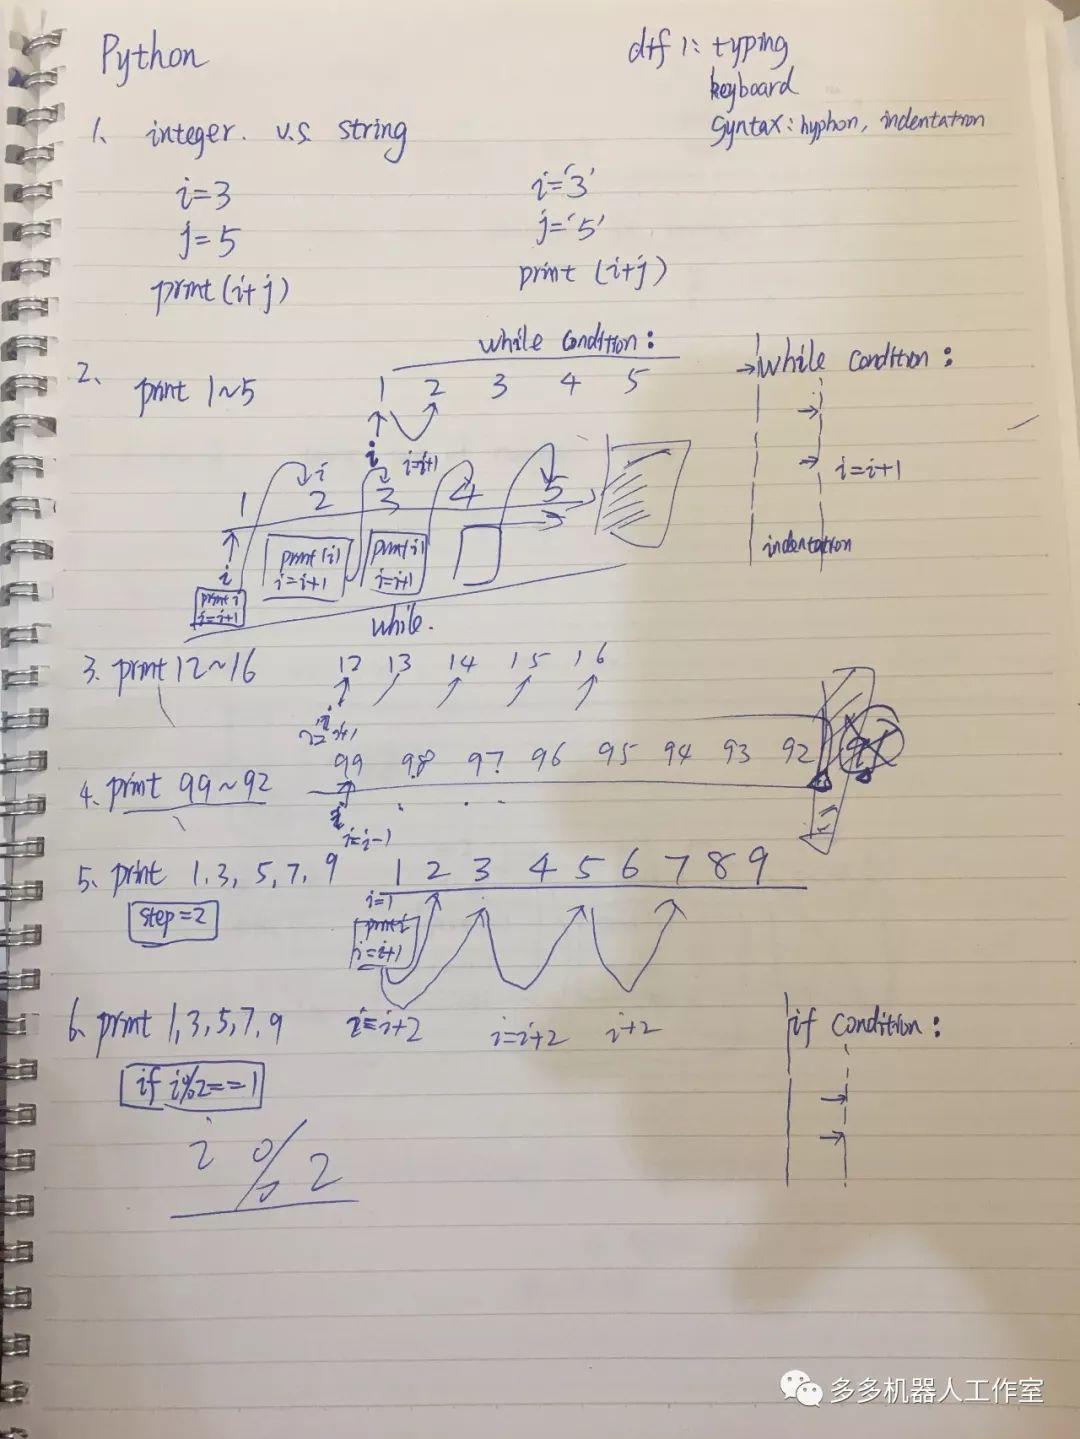 Python
dif 1: typing
keyboard
syntax: hyphon, indentation
1. integer. v.s. string
i=3
j=5
print(i+j)
i='3'
j='5'
print (i+j)
2. print 1~5
while condition:
1 2 3 4 5
i
i=i+1
i
1 2 3 4 5
i
print i
i=i+1
print(i)
i=i+1
print(i)
i=i+1
while.
while condition:
i=i+1
indentation
3. print 12~16
12 13 14 15 16
4. print 99~92
99 98 97 96 95 94 93 92
i
i=i-1
5. print 1.3, 5,7, 9
step=2
1 2 3 4 5 6 7 8 9
i=1
print i
i=i+1
6. print 1,3,5,7,9
i=i+2 i=i+2 i+2
if i%2==1
i % 2
if condition:
多多机器人工作室